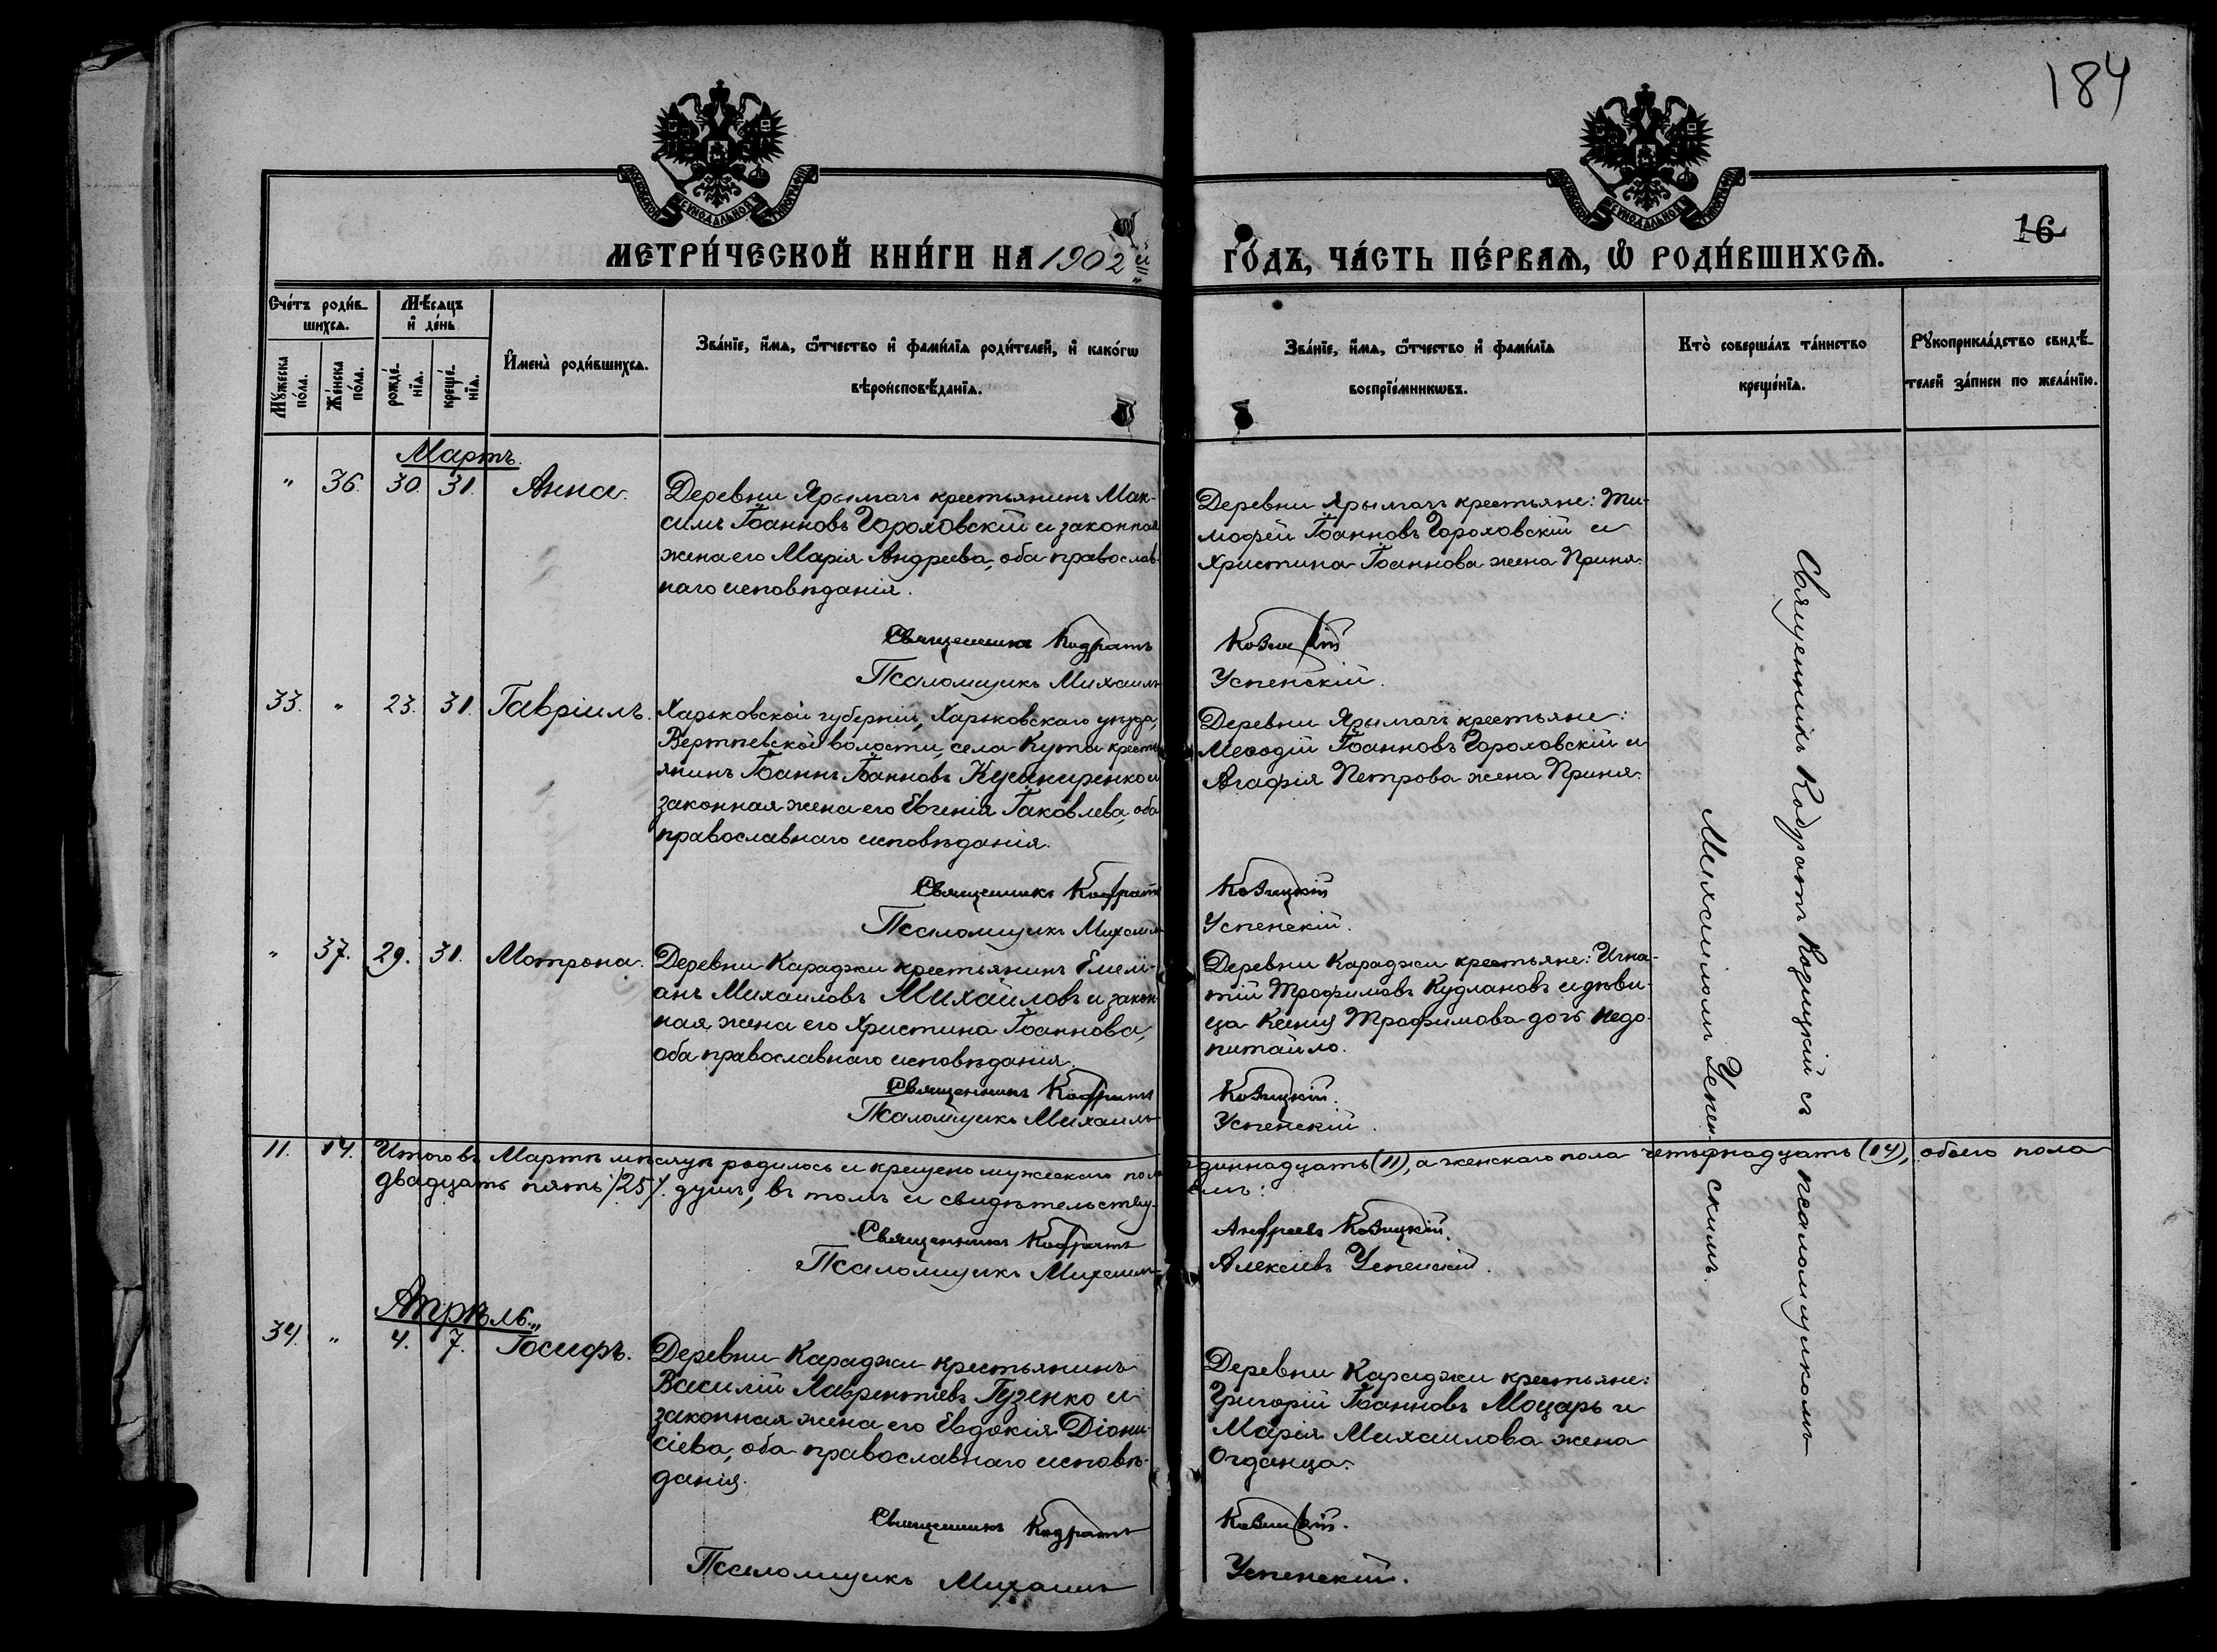 184
МОСКОВСКОЙ СѴНОДАЛЬНОЙ ТИПОГРАФІИ
МОСКОВСКОЙ СѴНОДАЛЬНОЙ ТИПОГРАФІИ
16
МЕТРИ́ЧЕСКОЙ КНИ́ГИ НА 1902й
ГО́ДЪ, ЧА́СТЬ ПЕ́РВАѦ, Ѡ҆ РОДИ́ВШИХСѦ.
Сче́тъ роди́в-
шихсѧ.
Мѣ́сѧцъ
и҆ де́нь
Мꙋ́жеска
по́ла.
Же́нска
по́ла.
рожде́-
нїѧ.
креще́-
нїѧ.
И҆мена̀ роди́вшихсѧ.
Зва́нїе, и҆́мѧ, ѻ҆́тчество и҆ фами́лїѧ роди́телей, и҆ како́гѡ
вѣроисповѣ́данїѧ.
Зва́нїе, и҆́мѧ, ѻ҆́тчество и҆ фами́лїѧ
воспрїе́мникѡвъ.
Кто̀ соверша́лъ та́инство
креще́нїѧ.
Рꙋкоприкла́дство свидѣ́-
телей за́писи по жела́нїю.
Мартъ.
" 36. 30. 31. Анна.
Деревни Ярымачъ крестьянинъ Мак-
симъ Іоанновъ Гороховскій и законная
жена его Марія Андреева, оба православ-
наго исповѣданія.
Священникъ Кодратъ
Псаломщикъ Михаилъ
Деревни Ярымачъ крестьяне: Ти-
моѳей Іоанновъ Гороховскій и
Христина Іоаннова жена Приня.
Козицкій
Успенскій.
33. " 23. 31. Гавріилъ.
Харьковской губерніи, Харьковскаго уѣзда,
волости, села Кута кресть
янинъ Іоаннъ Іоанновъ Кушниренко и
законная жена его Евгенія Іаковлева, оба
православнаго исповѣданія.
Священникъ Кодратъ
Псаломщикъ Михаилъ
Деревни Ярымачъ крестьяне:
Меѳодій Іоанновъ Гороховскій и
Агафія Петрова жена Приня.
Козицкій
Успенскій.
" 37. 29. 31. Матрона.
Деревни Караджи крестьянинъ Емелі-
анъ Михаиловъ Михайловъ и закон-
ная жена его Христина Іоаннова,
оба православнаго исповѣданія.
Священникъ Кодратъ
Псаломщикъ Михаилъ
Деревни Караджи крестьяне: Игна-
тій Трофимовъ Кудлановъ и дѣви-
ца Ксенія Трофимова дочь Недо-
питайло.
Козицкій.
Успенскій.
11. 14. Итого въ Мартѣ мѣсяцѣ родилось и крещено мужескаго пола
одиннадцать (11), а женскаго пола четырнадцать (14), обоего пола
двадцать пять /25/. душъ, въ томъ и свидѣтельству-
емъ:
Священникъ Кодратъ
Псаломщикъ Михаилъ
Андреевъ Козицкій.
Алексіевъ Успенскій.
Апрѣль.
34. " 4. 7. Іосифъ.
Деревни Караджи крестьянинъ
Василій Лаврентіевъ Гузенко и
законная жена его Евдокія Діони-
сіева, оба православнаго исповѣ-
данія.
Священникъ Кодратъ
Псаломщикъ Михаилъ
Деревни Караджи крестьяне:
Григорій Іоанновъ Моцарь и
Марія Михаилова жена
Огданца.
Козицкій.
Успенскій.
Священникъ Кодратъ Козицкій съ псаломщикомъ
Михаиломъ Успен-скимъ.